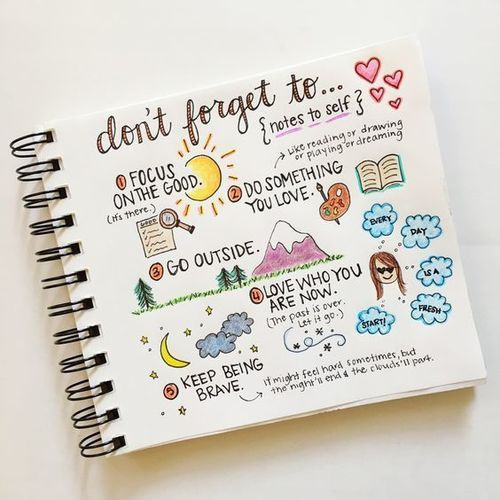 don't forget to...
{notes to self}
→ Like reading or drawing
or playing or dreaming
1 FOCUS
ON THE GOOD.
(It's there.)
GOOD
2 DO SOMETHING
YOU LOVE.
3 GO OUTSIDE.
4 LOVE WHO YOU
ARE NOW.
(The past is over.
Let it go.)
EVERY
DAY
IS A
FRESH
START!
5 KEEP BEING
BRAVE.
→ It might feel hard sometimes, but
the night'll end & the clouds'll part.